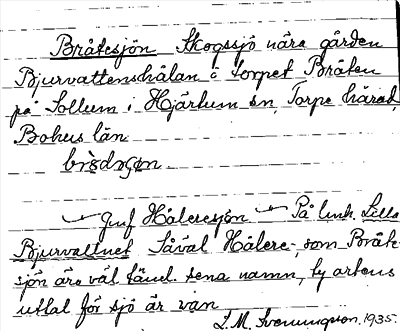 Bråtesjön Skogssjö nära gården
Bjurvattenshålan o torpet Bråten
på Sollum i Hjärtum sn, Torpe härad,
Bohus län
Jmf Håleresjön På link. Lilla
Bjurvattnet Såväl Hålere-, som Bråte-
sjön äro väl sånd. sena namn, ty ortens
uttal för sjö är van
S. M. Svenungson. 1935.